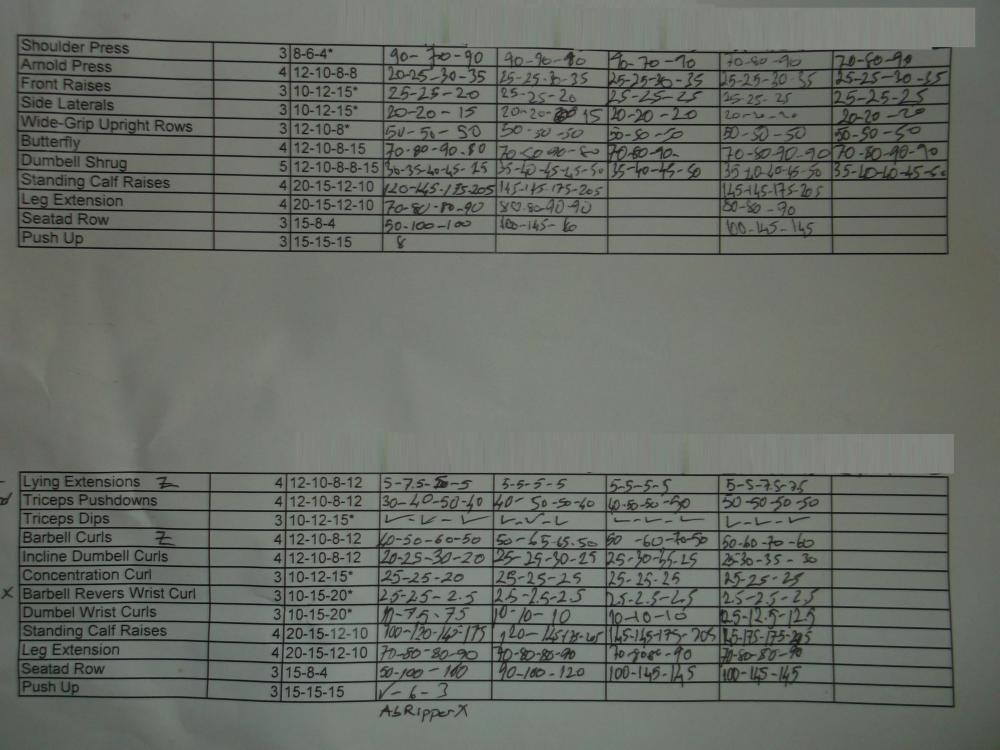 Shoulder Press 3 8-6-4* 90-70-90 90-90-90 90-70-90 70-80-90 70-80-90
Arnold Press 4 12-10-8-8 20-25-30-35 25-25-30-35 25-25-30-35 25-25-30-35 25-25-30-35
Front Raises 3 10-12-15* 25-25-20 25-25-20 25-25-25 25-25-25 25-25-25
Side Laterals 3 10-12-15* 20-20-15 20-20- 15 20-20-20 20-20-20 20-20-20
Wide-Grip Upright Rows 3 12-10-8* 50-50-50 50-50-50 50-50-50 50-50-50 50-50-50
Butterfly 4 12-10-8-15 70-80-90-80 70-80-90-80 70-80-90- 70-80-90-90 70-80-90-90
Dumbell Shrug 5 12-10-8-8-15 30-35-40-45-25 35-40-45-45-50 35-40-45-50 35-40-40-45-50 35-40-40-45-50
Standing Calf Raises 4 20-15-12-10 120-145-175-205 145-145-175-205 145-145-175-205
Leg Extension 4 20-15-12-10 70-80-80-90 80-80-90-90 80-80-90
Seatad Row 3 15-8-4 50-100-100 100-145- 100-145-145
Push Up 3 15-15-15 8
Lying Extensions Z 4 12-10-8-12 5-7.5- -5 5-5-5-5 5-5-5-5 5-5-7.5-7.5
Triceps Pushdowns 4 12-10-8-12 30-40-50-40 40-50-50-60 40-50-50-50 50-50-50-50
Triceps Dips 3 10-12-15* ✓-✓-✓ ✓-✓-✓ ✓-✓-✓ ✓-✓-✓
Barbell Curls Z 4 12-10-8-12 40-50-60-50 50-65-65-50 50-60-70-50 50-60-70-60
Incline Dumbell Curls 4 12-10-8-12 20-25-30-20 25-25-30-25 25-30-35-25 25-30-35-30
Concentration Curl 3 10-12-15* 25-25-20 25-25-25 25-25-25 25-25-25
x Barbell Revers Wrist Curl 3 10-15-20* 2.5-2.5-2.5 2.5-2.5-2.5 2.5-2.5-2.5 2.5-2.5-2.5
Dumbel Wrist Curls 3 10-15-20* 10-7.5-7.5 10-10-10 10-10-10 -12.5-12.5
Standing Calf Raises 4 20-15-12-10 100-130-145-175 120-145-175-205 145-145-175-205 145-175-175-205
Leg Extension 4 20-15-12-10 70-80-80-90 70-80-80-90 70-80-80-90 70-80-80-90
Seatad Row 3 15-8-4 50-100-100 90-100-120 100-145-145 100-145-145
Push Up 3 15-15-15 ✓-6-3
AbRipperX